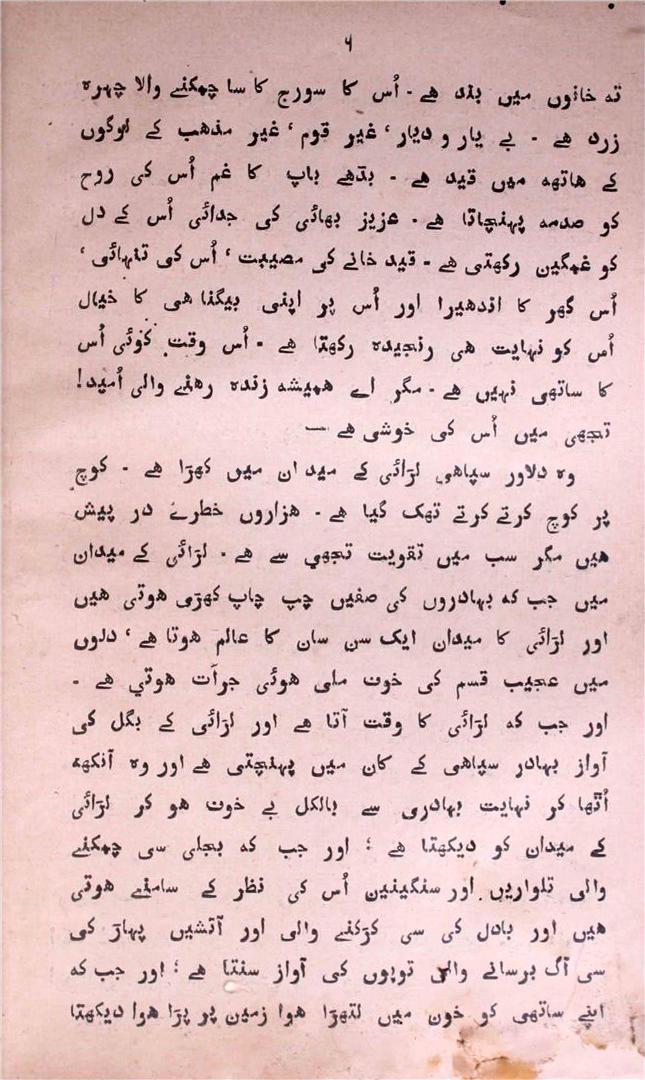 ٦
تہ خانوں میں بند ہے - اُس کا سورج کا سا چمکنے والا چہرہ
زرد ہے - بے یار و دیار ‘ غیر قوم ‘ غیر مذہب کے لوگوں
کے ہاتھہ میں قید ہے - بڈھے باپ کا غم اُس کی روح
کو صدمہ پہنچاتا ہے - عزیز بھائی کی جدائی اُس کے دل
کو غمگین رکھتی ہے - قید خانے کی مصیبت ‘ اُس کی تنہائی ‘
اُس گھر کا اندھیرا اور اُس پر اپنی بیگناہی کا خیال
اُس کو نہایت ہی رنجیدہ رکھتا ہے - اُس وقت کوئی اُس
کا ساتھی نہیں ہے - مگر اے ہمیشہ زندہ رہنے والی اُمید !
تجھی میں اُس کی خوشی ہے —
وہ دلاور سپاہی لڑائی کے میدان میں کھڑا ہے - کوچ
پر کوچ کرتے کرتے تھک گیا ہے - ہزاروں خطرے در پیش
ہیں مگر سب میں تقویت تجھی سے ہے - لڑائی کے میدان
میں جب کہ بہادروں کی صفیں چپ چاپ کھڑی ہوتی ہیں
اور لڑائی کا میدان ایک سن سان کا عالم ہوتا ہے ‘ دلوں
میں عجیب قسم کی خوف ملی ہوئی جرأت ہوتی ہے -
اور جب کہ لڑائی کا وقت آتا ہے اور لڑائی کے بگل کی
آواز بہادر سپاہی کے کان میں پہنچتی ہے اور وہ آنکھہ
اُٹھا کر نہایت بہادری سے بالکل بے خوف ہو کر لڑائی
کے میدان کو دیکھتا ہے ؛ اور جب کہ بجلی سی چمکنے
والی تلواریں اور سنگینیں اُس کی نظر کے سامنے ہوتی
ہیں اور بادل کی سی کڑکنے والی اور آتشیں پہاڑ کی
سی آگ برسانے والی توپوں کی آواز سنتا ہے ؛ اور جب کہ
اپنے ساتھی کو خون میں لتھڑا ہوا زمین پر پڑا ہوا دیکھتا